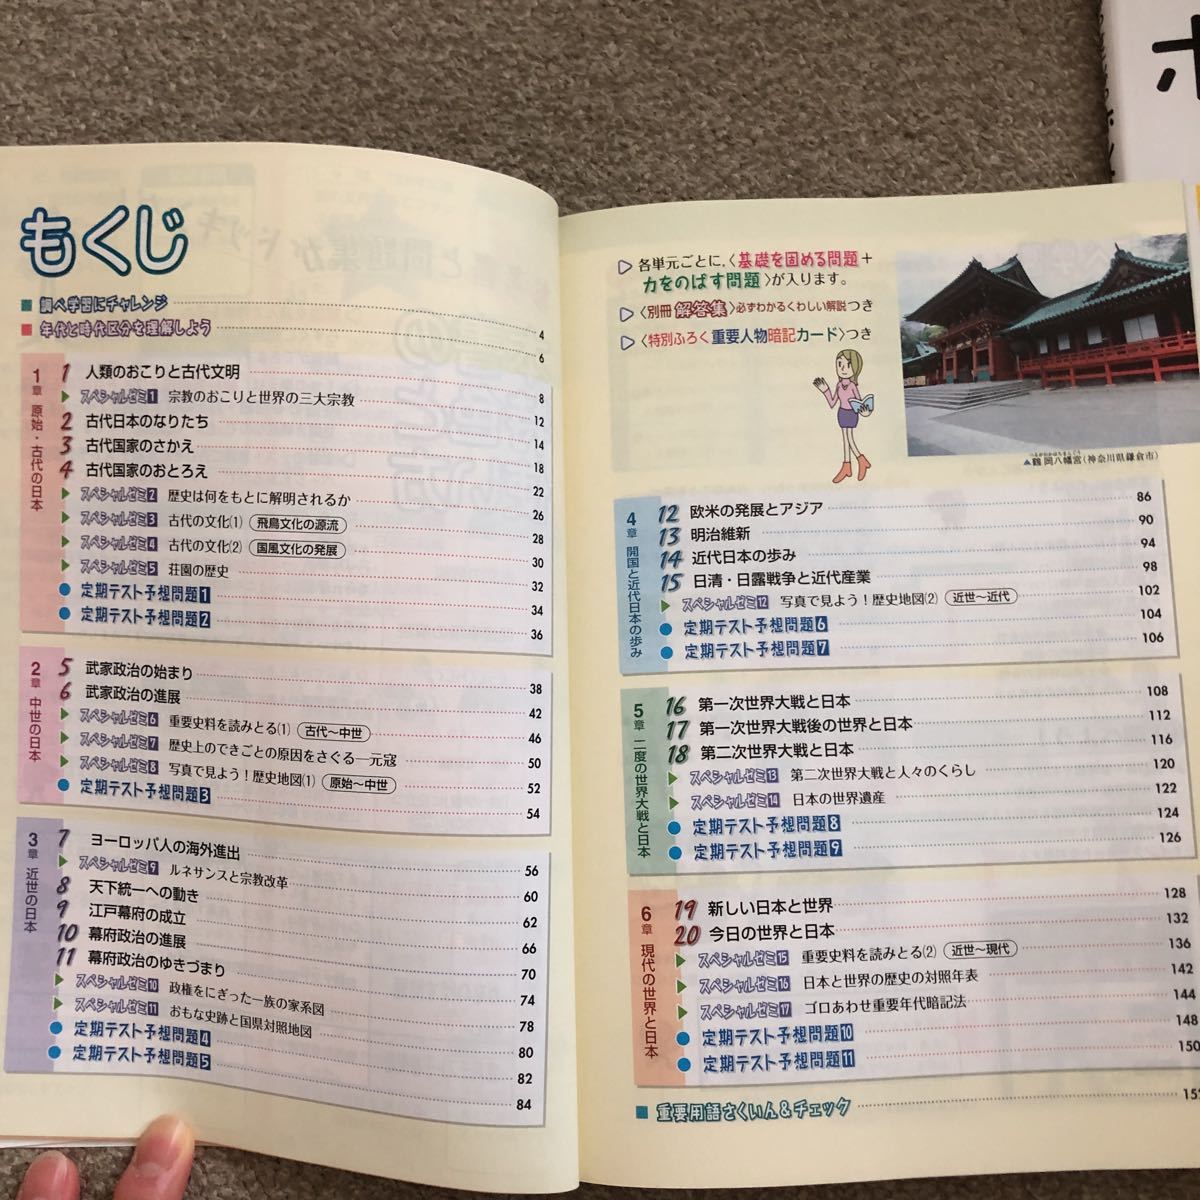 もくじ
調べ学習にチャレンジ 4
年代と時代区分を理解しよう 6
1章 原始・古代の日本
1 人類のおこりと古代文明 8
スペシャルゼミ1 宗教のおこりと世界の三大宗教 12
2 古代日本のなりたち 14
3 古代国家のさかえ 18
4 古代国家のおとろえ 22
スペシャルゼミ2 歴史は何をもとに解明されるか 26
スペシャルゼミ3 古代の文化(1) 飛鳥文化の源流 28
スペシャルゼミ4 古代の文化(2) 国風文化の発展 30
スペシャルゼミ5 荘園の歴史 32
定期テスト予想問題1 34
定期テスト予想問題2 36
2章 中世の日本
5 武家政治の始まり 38
6 武家政治の進展 42
スペシャルゼミ6 重要史料を読みとる(1) 古代〜中世 46
スペシャルゼミ7 歴史上のできごとの原因をさぐる―元寇 50
スペシャルゼミ8 写真で見よう!歴史地図(1) 原始〜中世 52
定期テスト予想問題3 54
3章 近世の日本
7 ヨーロッパ人の海外進出 56
スペシャルゼミ9 ルネサンスと宗教改革 60
8 天下統一への動き 62
9 江戸幕府の成立 66
10 幕府政治の進展 70
11 幕府政治のゆきづまり 74
スペシャルゼミ10 政権をにぎった一族の家系図 78
スペシャルゼミ11 おもな史跡と国県対照地図 80
定期テスト予想問題4 82
定期テスト予想問題5 84
各単元ごとに,〈基礎を固める問題+
力をのばす問題〉が入ります。
〈別冊 解答集〉必ずわかるくわしい解説つき
〈特別ふろく重要人物暗記カード〉つき
つるがおかはちまんぐう
▲鶴岡八幡宮(神奈川県鎌倉市)
4章 開国と近代日本の歩み
12 欧米の発展とアジア 86
13 明治維新 90
14 近代日本の歩み 94
15 日清・日露戦争と近代産業 98
スペシャルゼミ12 写真で見よう!歴史地図(2) 近世〜近代 102
定期テスト予想問題6 104
定期テスト予想問題7 106
5章 二度の世界大戦と日本
16 第一次世界大戦と日本 108
17 第一次世界大戦後の世界と日本 112
18 第二次世界大戦と日本 116
スペシャルゼミ13 第二次世界大戦と人々のくらし 120
スペシャルゼミ14 日本の世界遺産 122
定期テスト予想問題8 124
定期テスト予想問題9 126
6章 現代の世界と日本
19 新しい日本と世界 128
20 今日の世界と日本 132
スペシャルゼミ15 重要史料を読みとる(2) 近世〜現代 136
スペシャルゼミ16 日本と世界の歴史の対照年表 142
スペシャルゼミ17 ゴロあわせ重要年代暗記法 144
定期テスト予想問題10 148
定期テスト予想問題11 150
重要用語さくいん&チェック 152